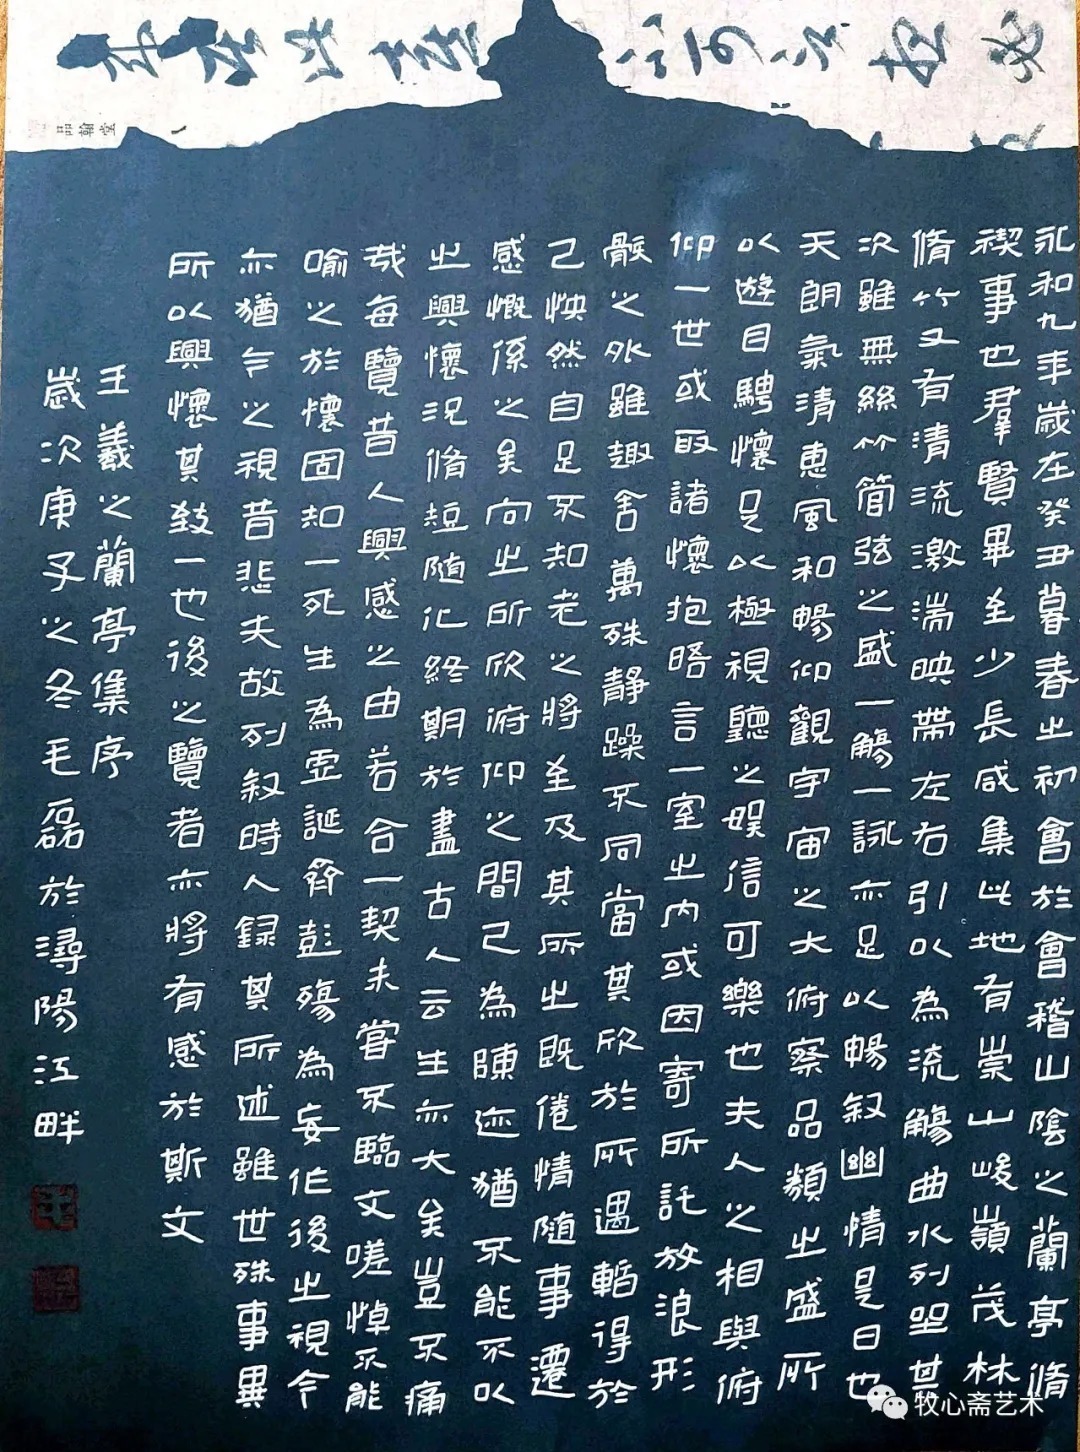 品翰堂
永和九年歲在癸丑暮春之初會於會稽山陰之蘭亭脩
禊事也羣賢畢至少長咸集此地有崇山峻嶺茂林
脩竹又有清流激湍映帶左右引以為流觴曲水列坐其
次雖無絲竹簡弦之盛一觴一詠亦足以暢叙幽情是日也
天朗氣清惠風和暢仰觀宇宙之大俯察品類之盛所
以遊目騁懷足以極視聽之娛信可樂也夫人之相與俯
仰一世或取諸懷抱晤言一室之内或因寄所託放浪形
骸之外雖趣舍萬殊靜躁不同當其欣於所遇暫得於
己怏然自足不知老之將至及其所之既倦情隨事遷
感慨係之矣向之所欣俯仰之間已為陳迹猶不能不以
之興懷況脩短隨化終期於盡古人云生亦大矣豈不痛
哉每覽昔人興感之由若合一契未嘗不臨文嗟悼不能
喻之於懷固知一死生為虛誕齊彭殤為妄作後之視今
亦猶今之視昔悲夫故列叙時人録其所述雖世殊事異
所以興懷其致一也後之覽者亦將有感於斯文
王羲之蘭亭集序
歲次庚子之冬毛磊於潯陽江畔
牧心斋艺术